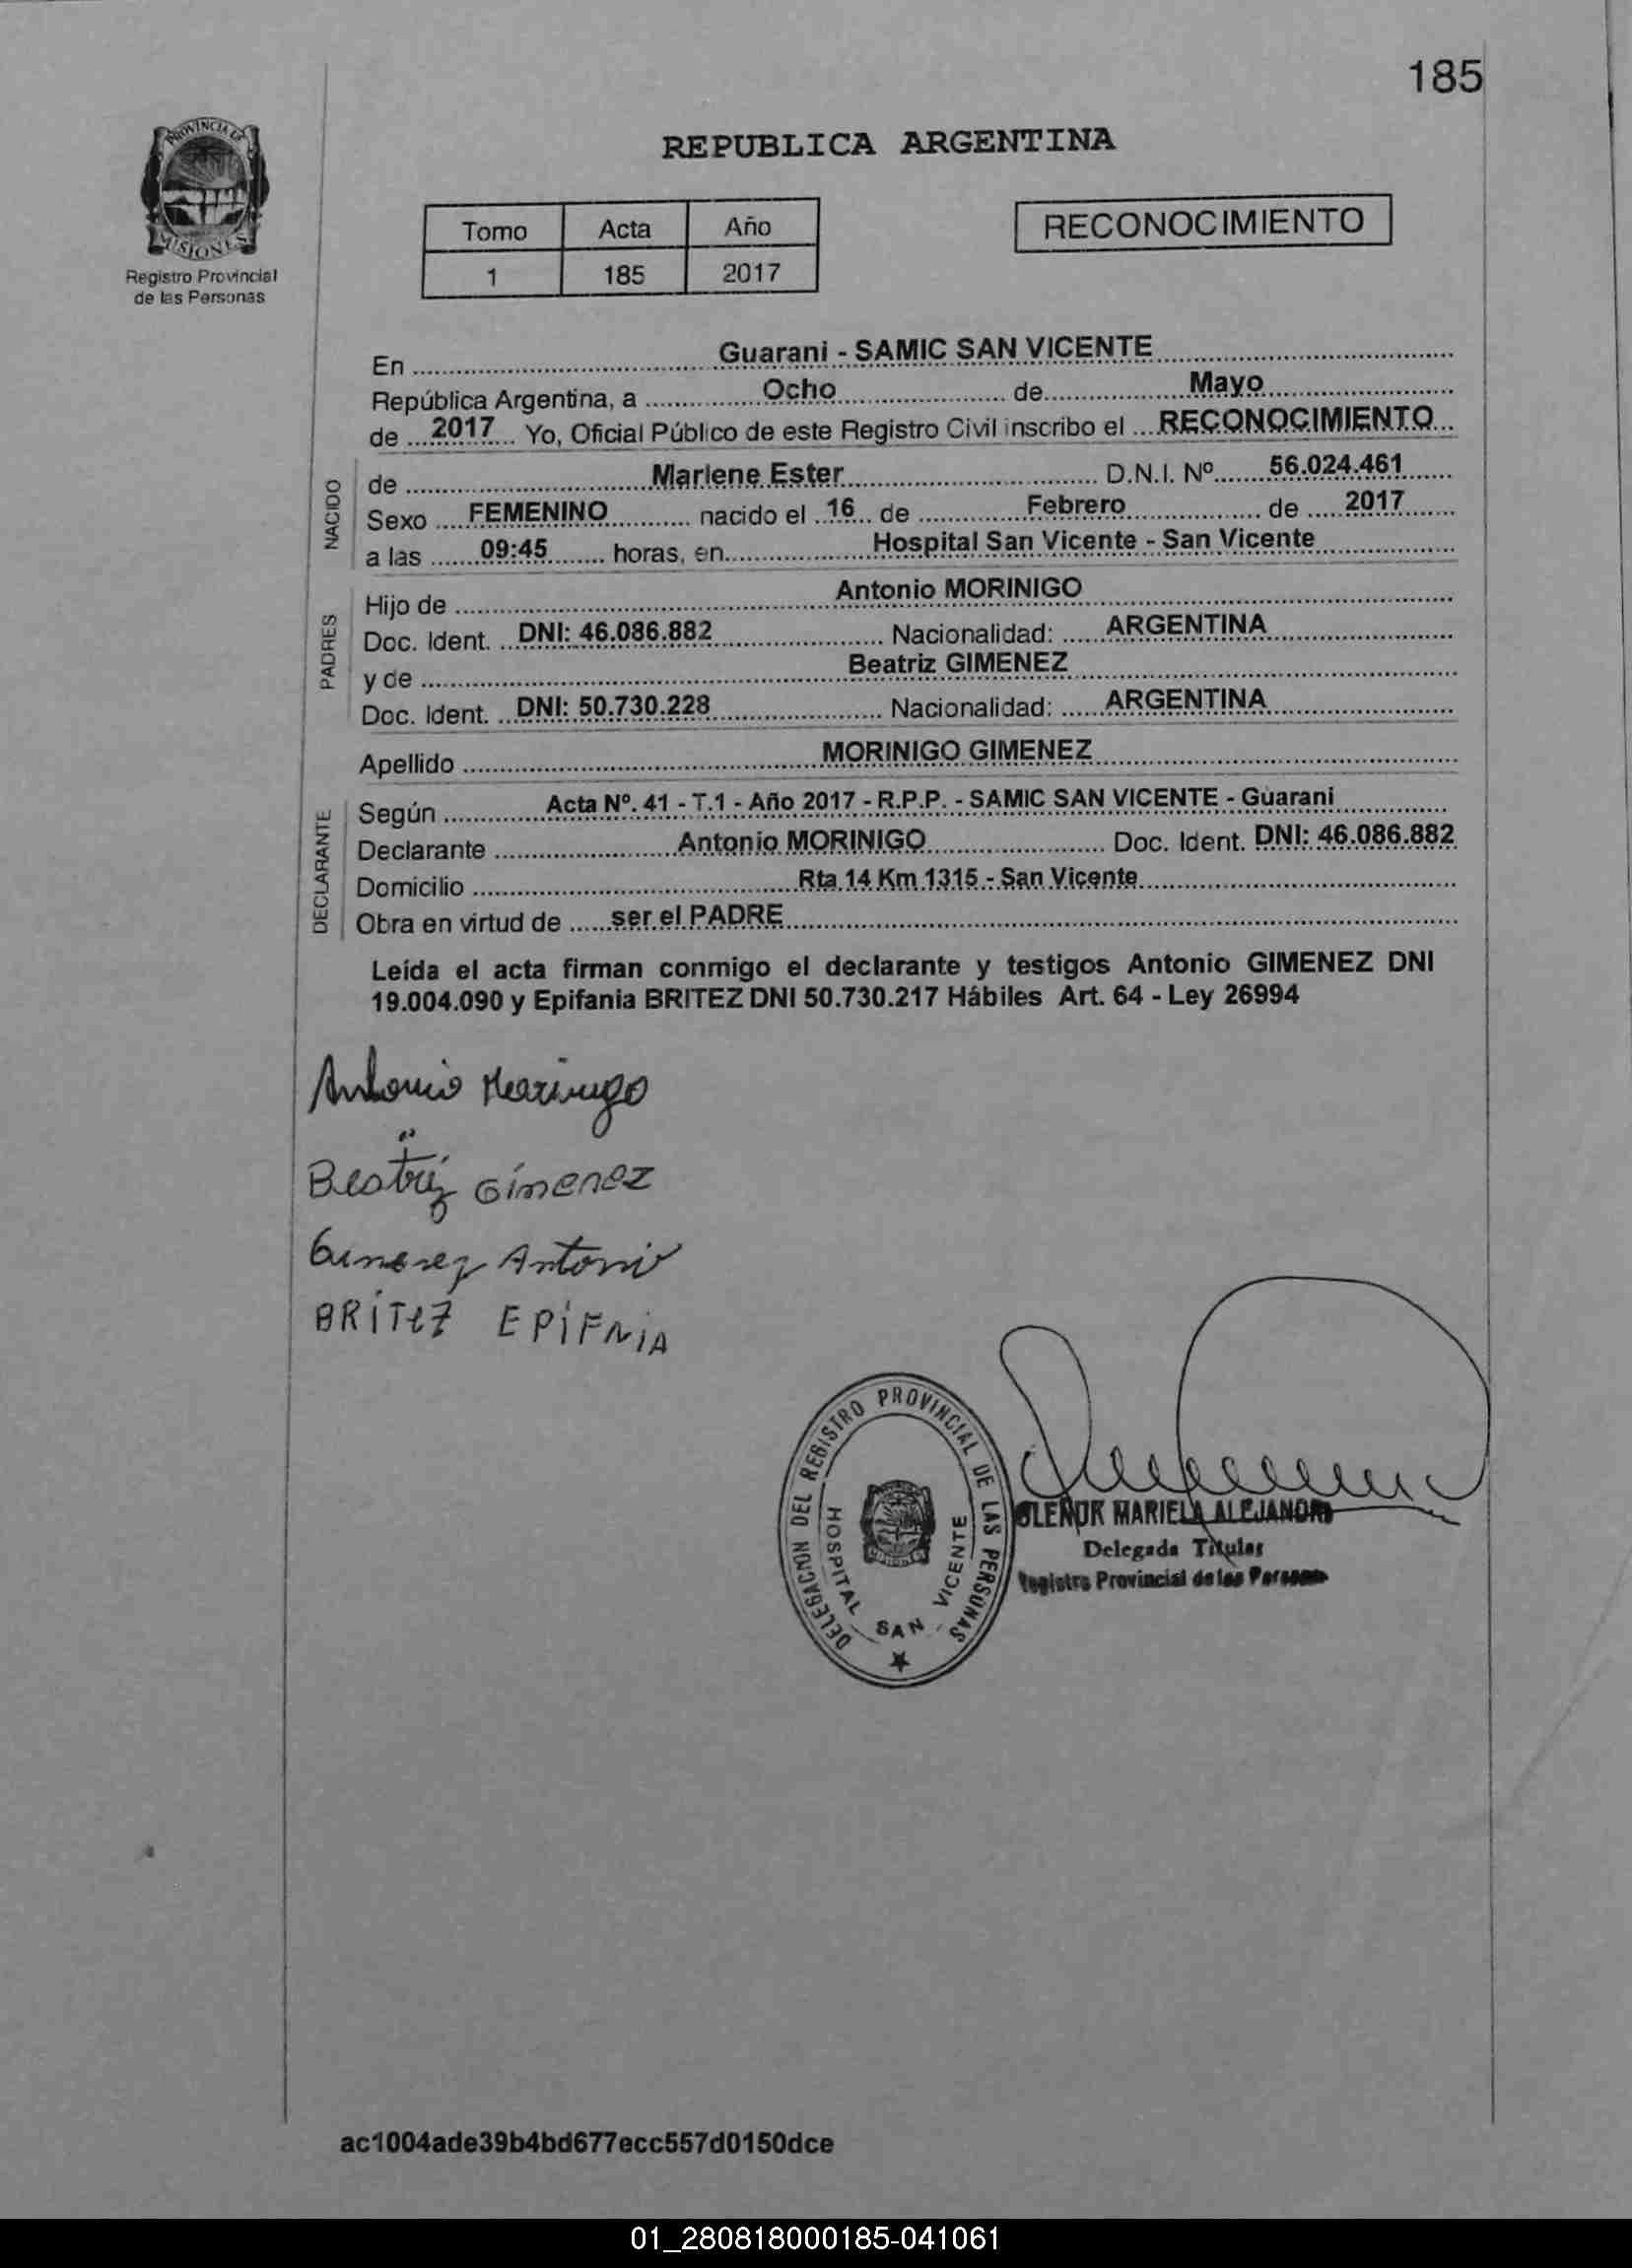 185
PROVINCIA DE
MISIONES
Registro Provincial
de las Personas
REPUBLICA ARGENTINA
Tomo Acta Año
1 185 2017
RECONOCIMIENTO
En Guarani - SAMIC SAN VICENTE
República Argentina, a Ocho de Mayo
de 2017 Yo, Oficial Público de este Registro Civil inscribo el RECONOCIMIENTO
NACIDO
de Marlene Ester D.N.I. Nº 56.024.461
Sexo FEMENINO nacido el 16 de Febrero de 2017
a las 09:45 horas, en Hospital San Vicente - San Vicente
PADRES
Hijo de Antonio MORINIGO
Doc. Ident. DNI: 46.086.882 Nacionalidad: ARGENTINA
y de Beatriz GIMENEZ
Doc. Ident. DNI: 50.730.228 Nacionalidad: ARGENTINA
Apellido MORINIGO GIMENEZ
DECLARANTE
Según Acta Nº. 41 - T.1 - Año 2017 - R.P.P. - SAMIC SAN VICENTE - Guarani
Declarante Antonio MORINIGO Doc. Ident. DNI: 46.086.882
Domicilio Rta 14 Km 1315 - San Vicente
Obra en virtud de ser el PADRE
Leída el acta firman conmigo el declarante y testigos Antonio GIMENEZ DNI
19.004.090 y Epifania BRITEZ DNI 50.730.217 Hábiles Art. 64 - Ley 26994
Antonio Morinigo
Beatriz Gimenez
Gimenez Antonio
BRITEZ EPIFNIA
DELEGACION DEL REGISTRO PROVINCIAL DE LAS PERSONAS
HOSPITAL SAN VICENTE
MARIELA ALEJANDRA
Delegada Titular
Registro Provincial de las Personas
ac1004ade39b4bd677ecc557d0150dce
01_280818000185-041061